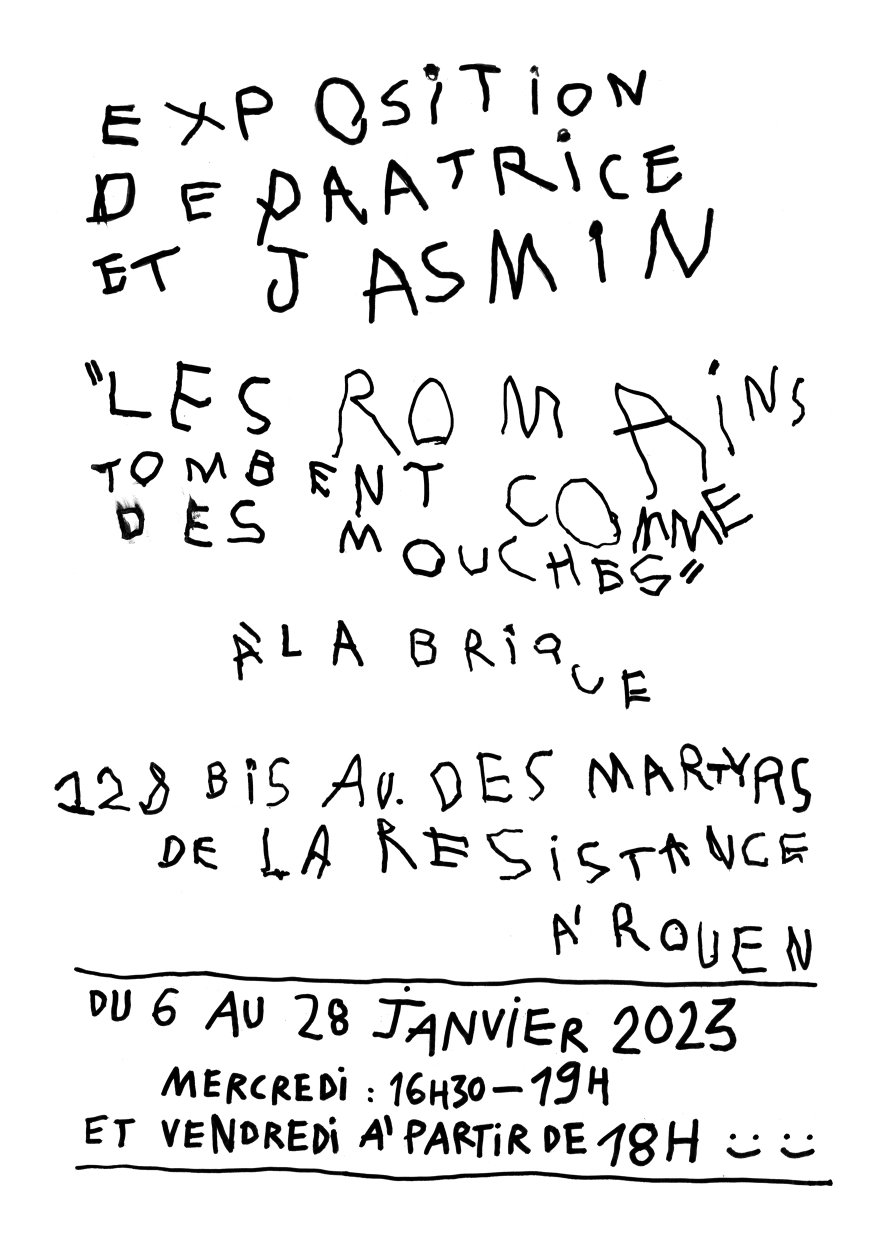 EXPOSITION
DE PAATRICE
ET JASMIN
"LES ROMAINS
TOMBENT COMME
DES MOUCHES"
À LA BRIQUE
128 BIS AV. DES MARTYRS
DE LA RESISTANCE
A' ROUEN
DU 6 AU 28 JANVIER 2023
MERCREDI : 16H30 – 19H
ET VENDREDI A' PARTIR DE 18H :) :)